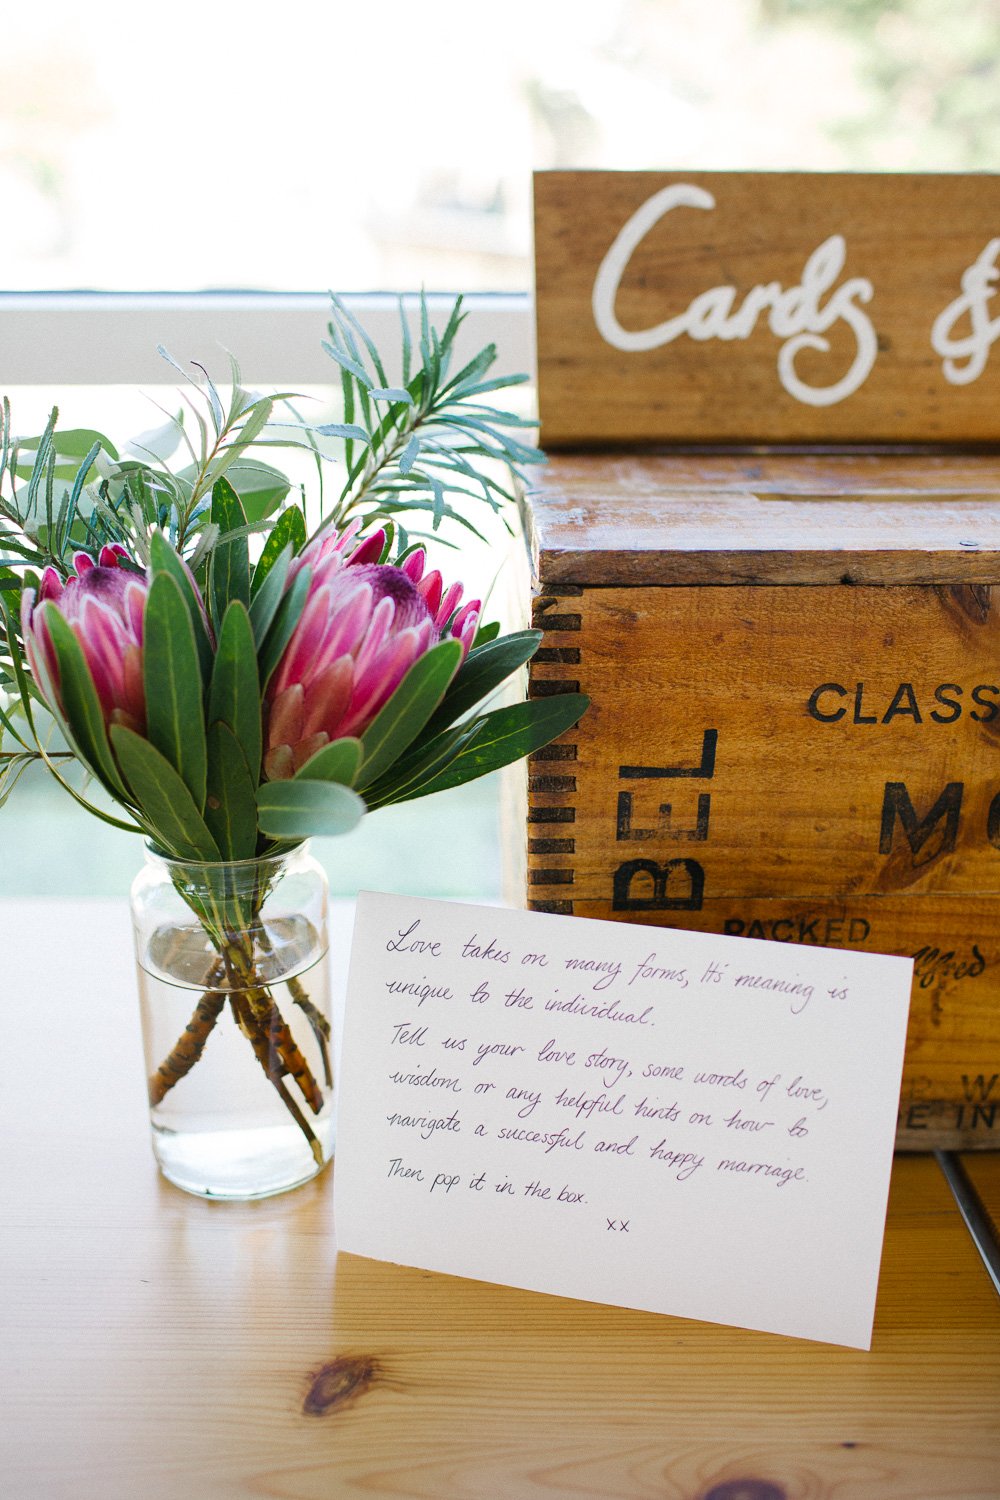 Cards &
CLASS
BEL
M
PACKED
Alfred
Love takes on many forms, It's meaning is
unique to the individual.
Tell us your love story, some words of love,
wisdom or any helpful hints on how to
navigate a successful and happy marriage.
Then pop it in the box.
xx
E IN